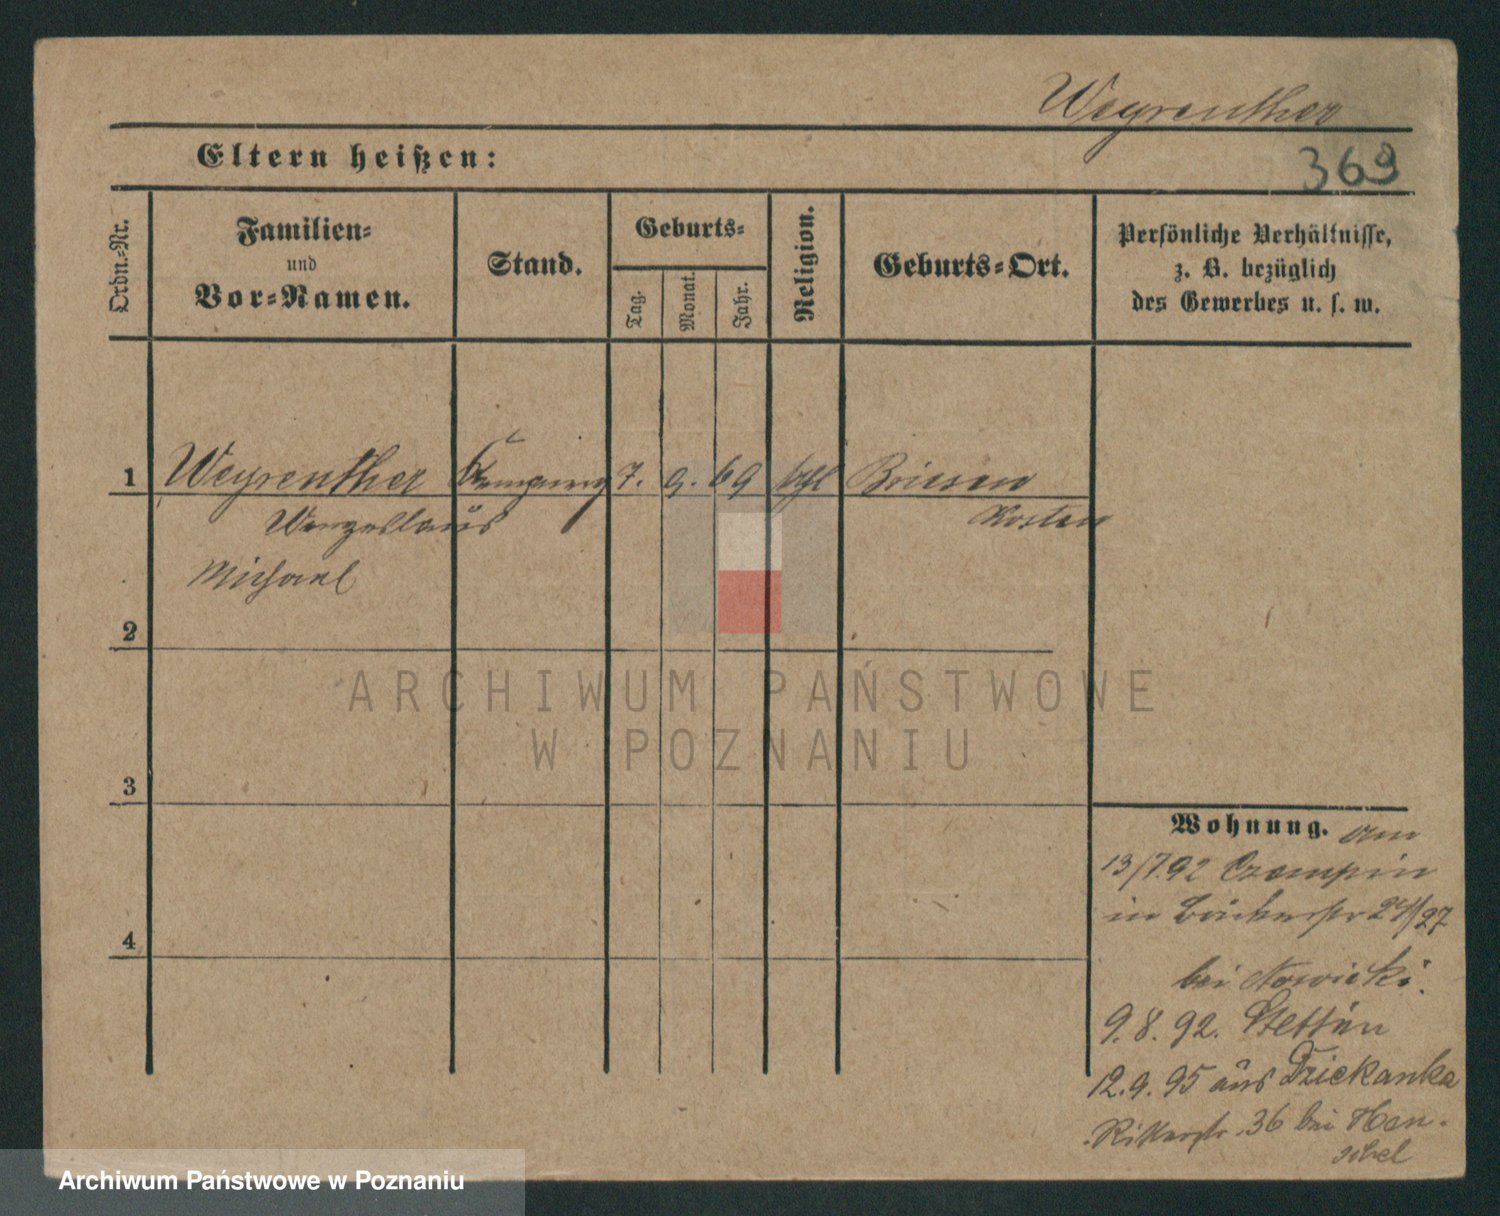 Weyrenther
Eltern heißen:
369
Ordn.-Nr.
Familien-
und
Vor-Namen.
Stand.
Geburts-
Tag.
Monat.
Jahr.
Religion.
Geburts-Ort.
Persönliche Verhältnisse,
z. B. bezüglich
des Gewerbes u. s. w.
1 Weyrenther 7. 9. 69 kthl Briesen
Wenzeslaus Kosten
Michael
2
ARCHIWUM PAŃSTWOWE
W POZNANIU
3
Wohnung. am
13/7.92 Czempin
in Bäckerstr 24/27
bei Nowicki.
4
9.8.92. Stettin
12.9.95 aus Dziekanka
Ritterstr. 36 bei Hen-
schel
Archiwum Państwowe w Poznaniu